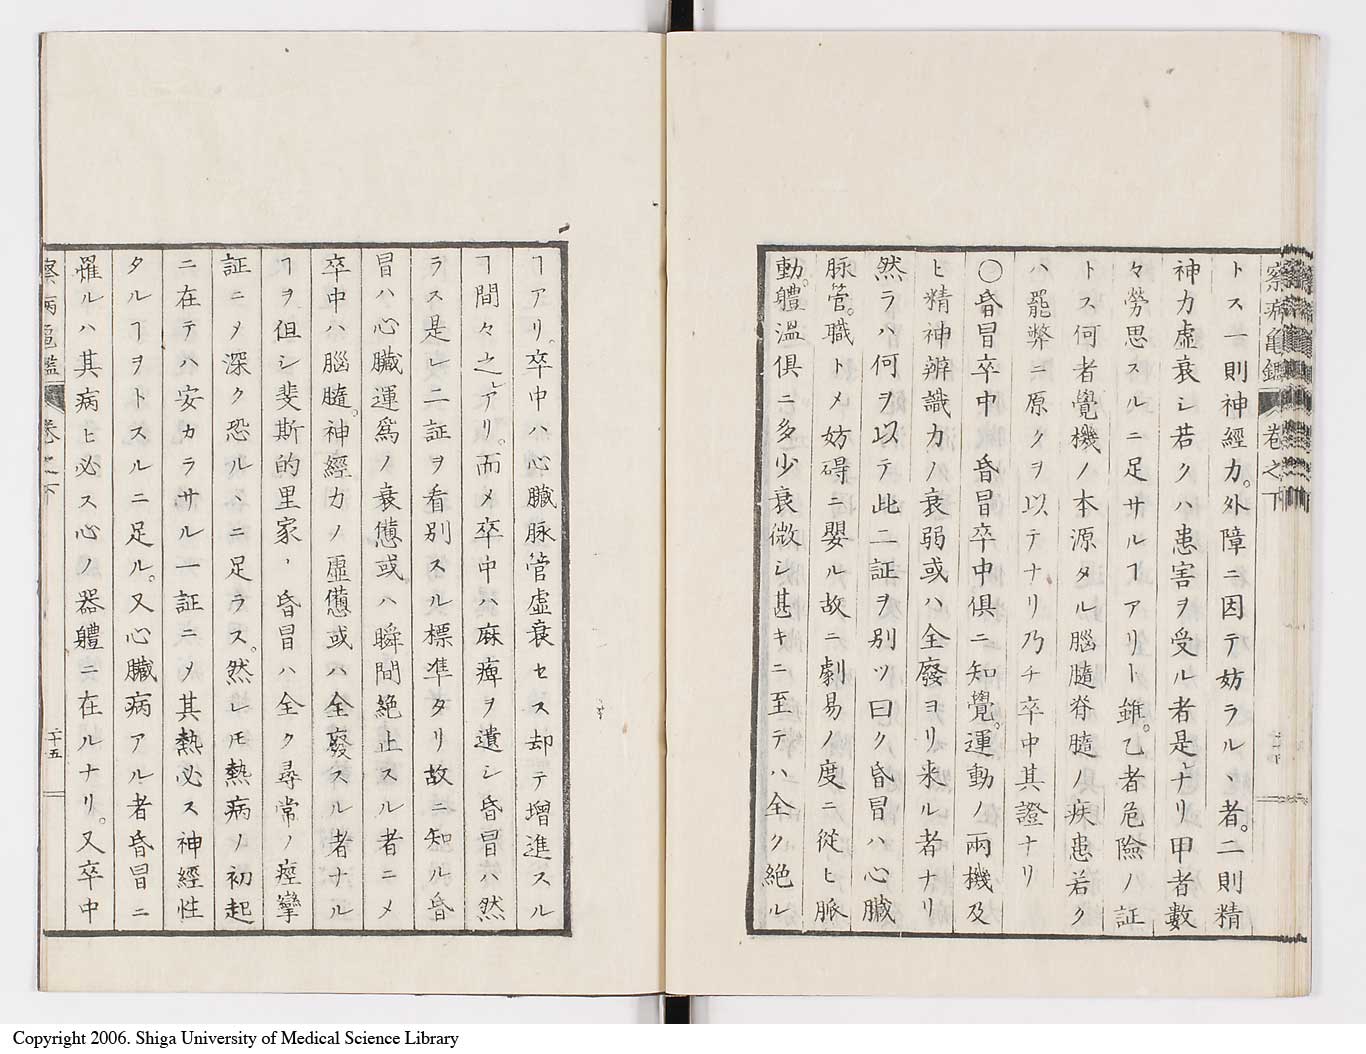 察病亀鑑 巻之下
トス一則神經力。外障ニ因テ妨ラル丶者。二則精
神力虚衰シ若クハ患害ヲ受ル者是ナリ甲者數
々勞思スルニ足サルヿアリト雖。乙者危險ノ証
トス何者覺機ノ本源タル腦髓脊髓ノ疾患若ク
ハ罷弊ニ原クヲ以テナリ乃チ卒中其證ナリ
〇昏冒卒中 昏冒卒中俱ニ知覺。運動ノ兩機及
ヒ精神辨識力ノ衰弱或ハ全廢ヨリ来ル者ナリ
然ラハ何ヲ以テ此二証ヲ別ツ曰ク昏冒ハ心臓
脉管。職トメ妨碍ニ嬰ル故ニ劇易ノ度ニ從ヒ脈
動。軆溫俱ニ多少衰微シ甚キニ至テハ全ク絶ル
ヿアリ。卒中ハ心臓脉管虚衰セス却テ增進スル
ヿ間々之レアリ。而メ卒中ハ麻痺ヲ遺シ昏冒ハ然
ラス是レ二証ヲ看別スル標準タリ故ニ知ル昏
冒ハ心臓運爲ノ衰憊或ハ瞬間絶止スル者ニメ
卒中ハ腦髓。神經力ノ虚憊或ハ全廢スル者ナル
ヿヲ但シ斐斯的里家，昏冒ハ全ク尋常ノ痙攣
証ニメ深ク恐ル丶ニ足ラス。然レモ熱病ノ初起
ニ在テハ安カラサル一証ニメ其熱必ス神經性
タルヿヲトスルニ足ル。又心臓病アル者昏冒ニ
罹ルハ其病ヒ必ス心ノ器軆ニ在ルナリ。又卒中
察病亀鑑 巻之下
二十五
Copyright 2006. Shiga University of Medical Science Library